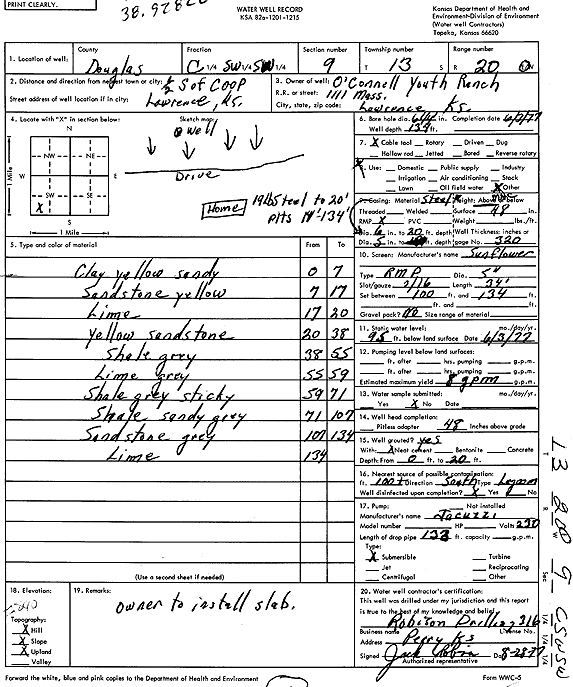 PRINT CLEARLY.
WATER WELL RECORD
KSA 82a-1201-1215
Kansas Department of Health and
Environment-Division of Environment
(Water well Contractors)
Topeka, Kansas 66620
1. Location of well:
County
Douglas
Fraction
C 1/4 SW 1/4 SW 1/4
Section number
9
Township number
T 13 S
Range number
R 20
2. Distance and direction from nearest town or city: 1/2 S of COOP
Street address of well location if in city: Lawrence, Ks.
3. Owner of well: O'Connell Youth Ranch
R.R. or street: 1111 Mass.
City, state, zip code: Lawrence Ks.
4. Locate with "X" in section below:
N
NW NE
W E
SW SE
X
S
1 Mile
1 Mile
Sketch map:
well
Drive
Home
19 lb steel to 20'
6. Bore hole dia. in. Completion date
Well depth 134 ft.
7. X Cable tool Rotary Driven Dug
Hollow rod Jetted Bored Reverse rotary
8. Use: Domestic Public supply Industry
Irrigation Air conditioning Stock
Lawn Oil field water X Other
9. Casing: Material Steel Height: Above or below
Threaded Welded Surface 48 in.
RMP X PVC Weight lbs./ft.
Dia. 6 in. to 20 ft. depth Wall Thickness: inches or
Dia. 5 in. to ft. depth gage No. 320
5. Type and color of material From To
Clay yellow sandy 0 7
Sandstone yellow 7 17
Lime 17 20
yellow sandstone 20 38
Shale grey 38 55
Lime grey 55 59
Shale grey sticky 59 71
Shale sandy grey 71 107
Sandstone grey 107 134
Lime 134
(Use a second sheet if needed)
10. Screen: Manufacturer's name Sunflower
Type RMP Dia. 5"
Slot/gauze Length 34'
Set between 100 ft. and 134 ft.
ft. and ft.
Gravel pack? no Size range of material
11. Static water level: mo./day/yr.
95 ft. below land surface Date 6/3/77
12. Pumping level below land surfaces:
ft. after hrs. pumping g.p.m.
ft. after hrs. pumping g.p.m.
Estimated maximum yield 8 gpm g.p.m.
13. Water sample submitted: mo./day/yr.
Yes X No Date
14. Well head completion:
Pitless adapter 48 Inches above grade
15. Well grouted? yes
With: X Neat cement Bentonite Concrete
Depth: From 0 ft. to 20 ft.
16. Nearest source of possible contamination:
ft. 100+ Direction South Type Lagoon
Well disinfected upon completion? X Yes No
17. Pump: Not installed
Manufacturer's name Jacuzzi
Model number HP Volts 230
Length of drop pipe 123 ft. capacity g.p.m.
Type:
X Submersible Turbine
Jet Reciprocating
Centrifugal Other
18. Elevation:
Topography:
X Hill
X Slope
X Upland
Valley
19. Remarks:
owner to install slab.
20. Water well contractor's certification:
This well was drilled under my jurisdiction and this report
is true to the best of my knowledge and belief.
Drilling 316
Business name License No.
Address Perry Ks
Signed Jack Date
Authorized representative
Forward the white, blue and pink copies to the Department of Health and Environment
Form WWC-5